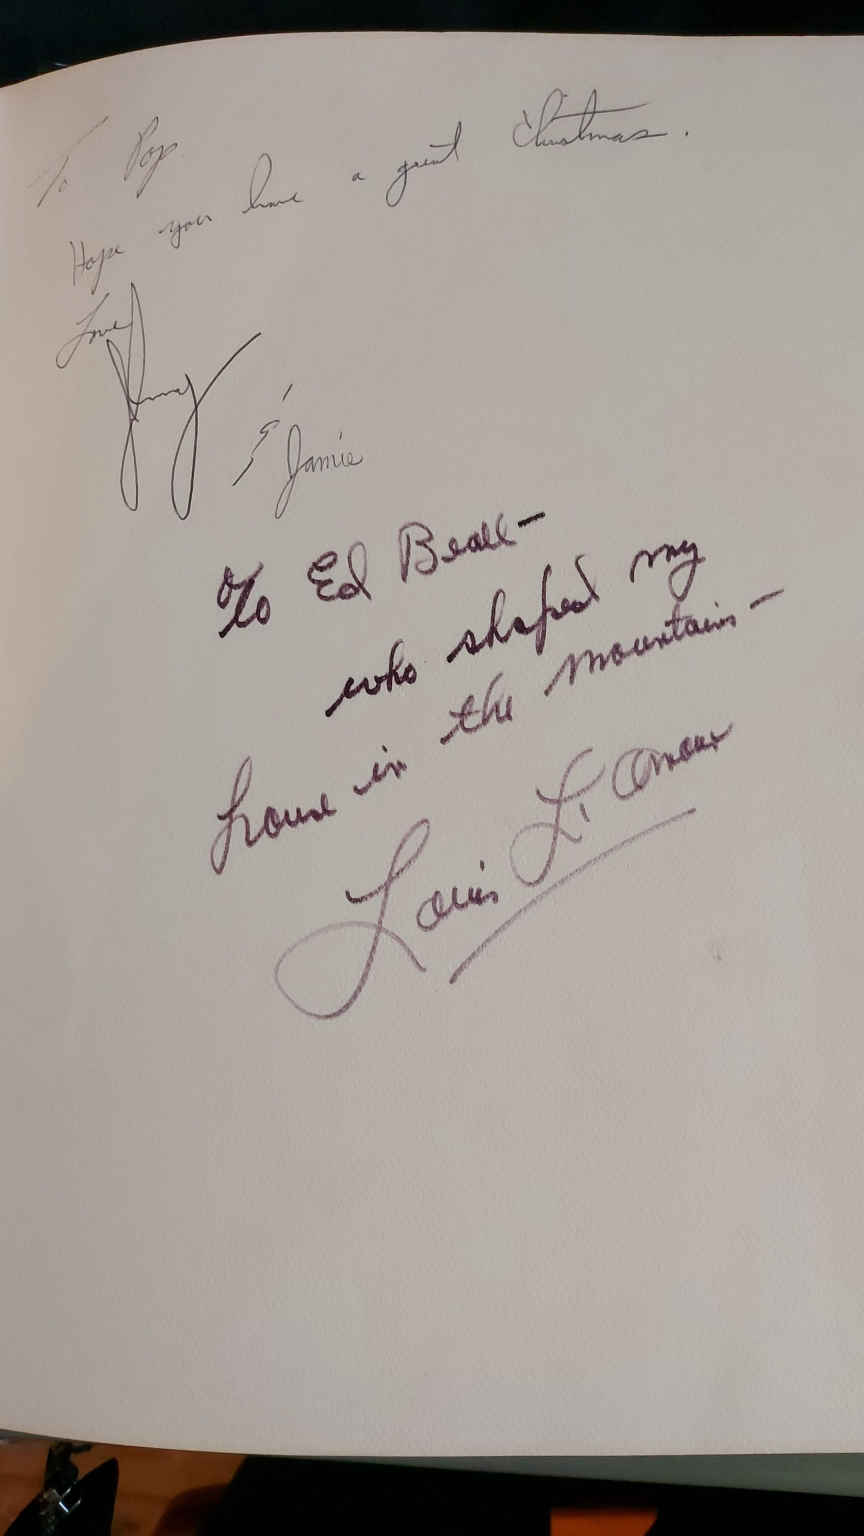 To Pop
Hope you have a great Christmas.
Love,
Jimmy
& Jamie
To Ed Beall—
who shaped my
house in the mountains—
Louis L'Amour